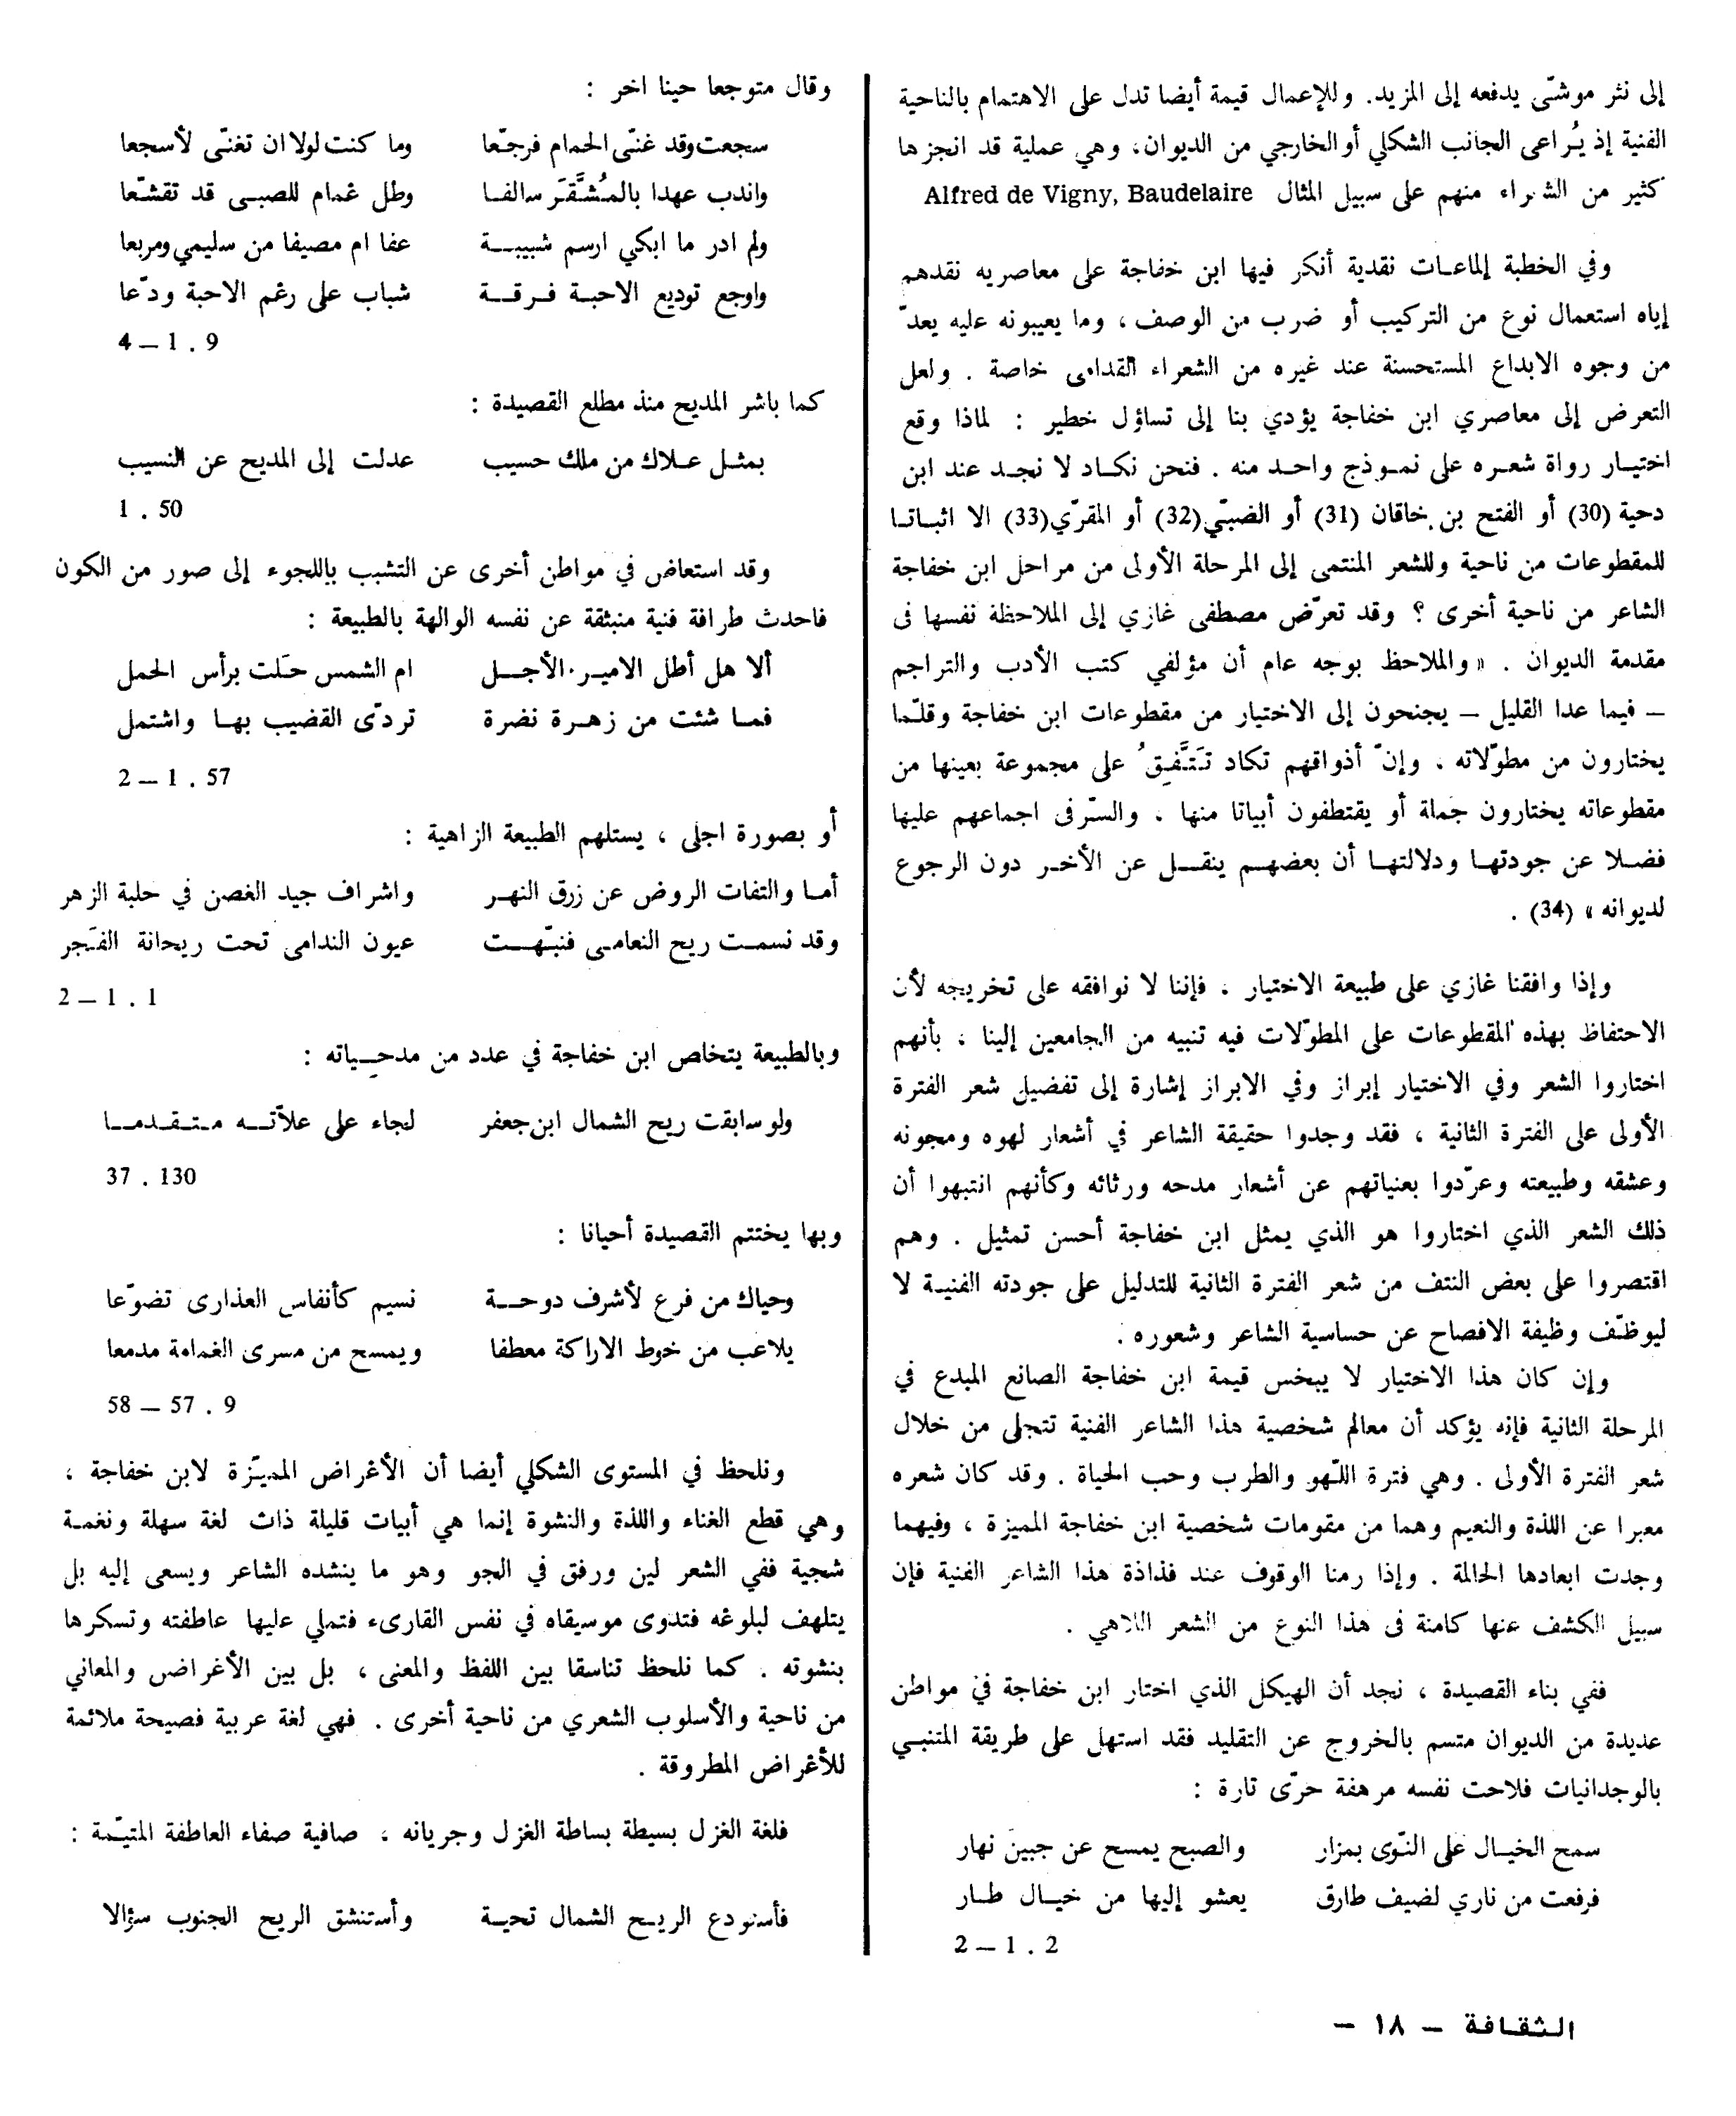 إلى نثر موشّى يدفعه إلى المزيد. وللإعمال قيمة أيضا تدل على الاهتمام بالناحية
الفنية إذ يُراعى الجانب الشكلي أو الخارجي من الديوان، وهي عملية قد انجزها
كثير من الشعراء منهم على سبيل المثال Alfred de Vigny, Baudelaire
وفي الخطبة إلماعات نقدية أنكر فيها ابن خفاجة على معاصريه نقدهم
إياه استعمال نوع من التركيب أو ضرب من الوصف ، وما يعيبونه عليه يعدّ
من وجوه الابداع المستحسنة عند غيره من الشعراء القدامى خاصة . ولعل
التعرض إلى معاصري ابن خفاجة يؤدي بنا إلى تساؤل خطير : لماذا وقع
اختيار رواة شعره على نموذج واحد منه . فنحن نكاد لا نجد عند ابن
دحية (30) أو الفتح بن خاقان (31) أو الضبّي(32) أو المقرّي(33) الا اثباتا
للمقطوعات من ناحية وللشعر المنتمى إلى المرحلة الأولى من مراحل ابن خفاجة
الشاعر من ناحية أخرى ؟ وقد تعرّض مصطفى غازي إلى الملاحظة نفسها فى
مقدمة الديوان . « والملاحظ بوجه عام أن مؤلفي كتب الأدب والتراجم
— فيما عدا القليل — يجنحون إلى الاختيار من مقطوعات ابن خفاجة وقلّما
يختارون من مطوّلاته ، وإنّ أذواقهم تكاد تَتَّفِقُ على مجموعة بعينها من
مقطوعاته يختارون جملة أو يقتطفون أبياتا منها ، والسّر فى اجماعهم عليها
فضلا عن جودتها ودلالتها أن بعضهم ينقل عن الأخر دون الرجوع
لديوانه » (34) .
وإذا وافقنا غازي على طبيعة الاختيار ، فإننا لا نوافقه على تخريجه لأن
الاحتفاظ بهذه المقطوعات على المطوّلات فيه تنبيه من الجامعين إلينا ، بأنهم
اختاروا الشعر وفي الاختيار إبراز وفي الابراز إشارة إلى تفضيل شعر الفترة
الأولى على الفترة الثانية ، فقد وجدوا حقيقة الشاعر في أشعار لهوه ومجونه
وعشقه وطبيعته وعرّدوا بعنياتهم عن أشعار مدحه ورثائه وكأنهم انتبهوا أن
ذلك الشعر الذي اختاروا هو الذي يمثل ابن خفاجة أحسن تمثيل . وهم
اقتصروا على بعض النتف من شعر الفترة الثانية للتدليل على جودته الفنية لا
ليوظّف وظيفة الافصاح عن حساسية الشاعر وشعوره .
وإن كان هذا الاختيار لا يبخس قيمة ابن خفاجة الصانع المبدع في
المرحلة الثانية فإنه يؤكد أن معالم شخصية هذا الشاعر الفنية تتجلى من خلال
شعر الفترة الأولى . وهي فترة اللّهو والطرب وحب الحياة . وقد كان شعره
معبرا عن اللذة والنعيم وهما من مقومات شخصية ابن خفاجة المميزة ، وفيهما
وجدت ابعادها الحالمة . وإذا رمنا الوقوف عند فذاذة هذا الشاعر الفنية فإن
سبيل الكشف عنها كامنة فى هذا النوع من الشعر اللاهي .
ففي بناء القصيدة ، نجد أن الهيكل الذي اختار ابن خفاجة في مواطن
عديدة من الديوان متسم بالخروج عن التقليد فقد استهل على طريقة المتنبي
بالوجدانيات فلاحت نفسه مرهفة حرّى تارة :
سمح الخيال على النّوى بمزار والصبح يمسح عن جبين نهار
فرفعت من ناري لضيف طارق يعشو إليها من خيال طار
2 . 1 — 2
وقال متوجعا حينا اخر :
سجعت وقد غنّى الحمام فرجّعا وما كنت لولا ان تغنّى لأسجعا
واندب عهدا بالمُشَّقَر سالفا وظل غمام للصبى قد تقشّعا
ولم ادر ما ابكي ارسم شبيبة عفا ام مصيفا من سليمي ومربعا
واوجع توديع الاحبة فرقة شباب على رغم الاحبة ودّعا
9 . 1 — 4
كما باشر المديح منذ مطلع القصيدة :
بمثل علاك من ملك حسيب عدلت إلى المديح عن النسيب
50 . 1
وقد استعاض في مواطن أخرى عن التشبب بإللجوء إلى صور من الكون
فاحدث طرافة فنية منبثقة عن نفسه الوالهة بالطبيعة :
ألا هل أطل الامير الأجل ام الشمس حَلت برأس الحمل
فما شئت من زهرة نضرة تردّى القضيب بها واشتمل
57 . 1 — 2
أو بصورة اجلى ، يستلهم الطبيعة الزاهية :
أما والتفات الروض عن زرق النهر واشراف جيد الغصن في حلبة الزهر
وقد نسمت ريح النعامى فنبّهت عيون الندامى تحت ريحانة الفَجر
1 . 1 — 2
وبالطبيعة يتخلص ابن خفاجة في عدد من مدحياته :
ولو سابقت ريح الشمال ابن جعفر لجاء على علاّته متقدما
130 . 37
وبها يختتم القصيدة أحيانا :
وحياك من فرع لأشرف دوحة نسيم كأنفاس العذارى تضوّعا
يلاعب من خوط الاراكة معطفا ويمسح من مسرى الغمامة مدمعا
9 . 57 — 58
ونلحظ في المستوى الشكلي أيضا أن الأغراض المميّزة لابن خفاجة ،
وهي قطع الغناء واللذة والنشوة إنما هي أبيات قليلة ذات لغة سهلة ونغمة
شجية ففي الشعر لين ورفق في الجو وهو ما ينشده الشاعر ويسعى إليه بل
يتلهف لبلوغه فتدوى موسيقاه في نفس القارىء فتملي عليها عاطفته وتسكرها
بنشوته . كما نلحظ تناسقا بين اللفظ والمعنى ، بل بين الأغراض والمعاني
من ناحية والأسلوب الشعري من ناحية أخرى . فهي لغة عربية فصيحة ملائمة
للأغراض المطروقة .
فلغة الغزل بسيطة بساطة الغزل وجريانه ، صافية صفاء العاطفة المتيّمة :
فأستودع الريح الشمال تحية وأستنشق الريح الجنوب سؤالا
الثقافة – ١٨ –